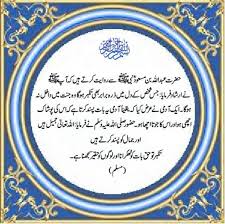 بسم اللہ الرحمن الرحیم
حضرت عبداللہ بن مسعودؓ نبی ﷺ سے روایت کرتے ہیں کہ آپ ﷺ
نے ارشاد فرمایا، جس شخص کے دل میں ذرہ برابر بھی تکبر ہوگا وہ جنت میں داخل نہ
ہوگا۔ ایک آدمی نے عرض کیا کہ، یقیناً آدمی یہ بات پسند کرتا ہے کہ اس کی پوشاک
اچھی ہو اور اس کا جوتا اچھا ہو۔ حضور صلی اللہ علیہ وسلم نے فرمایا، اللہ تعالیٰ جمیل ہیں
اور جمال کو پسند کرتے ہیں
تکبر تو حق بات کو ٹھکرانا اور لوگوں کو حقیر سمجھنا ہے۔
(مسلم)